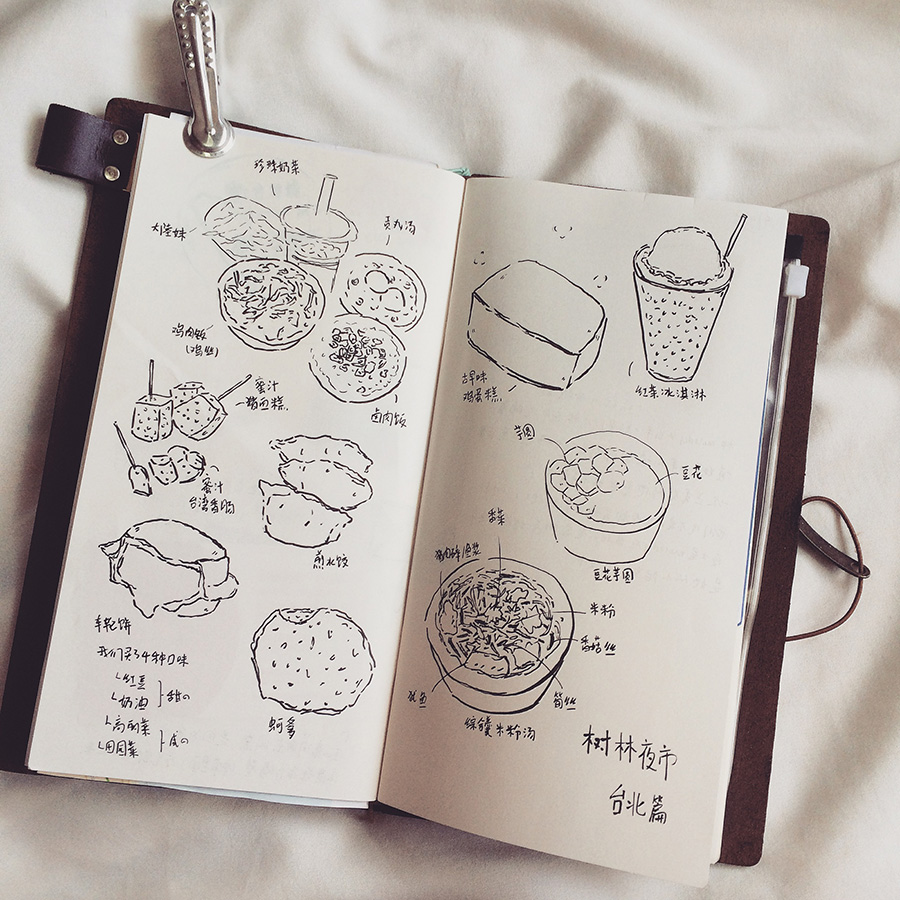 珍珠奶茶
贡丸汤
鸡肉饭
(鸡丝)
卤肉饭
蜜汁
猪血糕
蜜汁
台湾香肠
煎水饺
车轮饼
我们买了4种口味
红豆
奶油
甜の
高丽菜
田园菜
咸の
蚵爹
古早味
鸡蛋糕
红茶冰淇淋
芋圆
豆花
豆花芋圆
香菜
米粉
香菇丝
鱿鱼
筍丝
综合米粉汤
树林夜市
台北篇